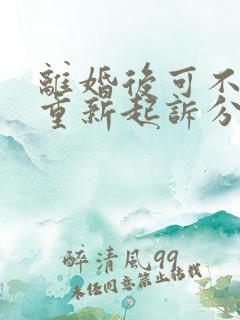 離婚後可不
重新起訴分
醉清風99
未经同意禁止转载